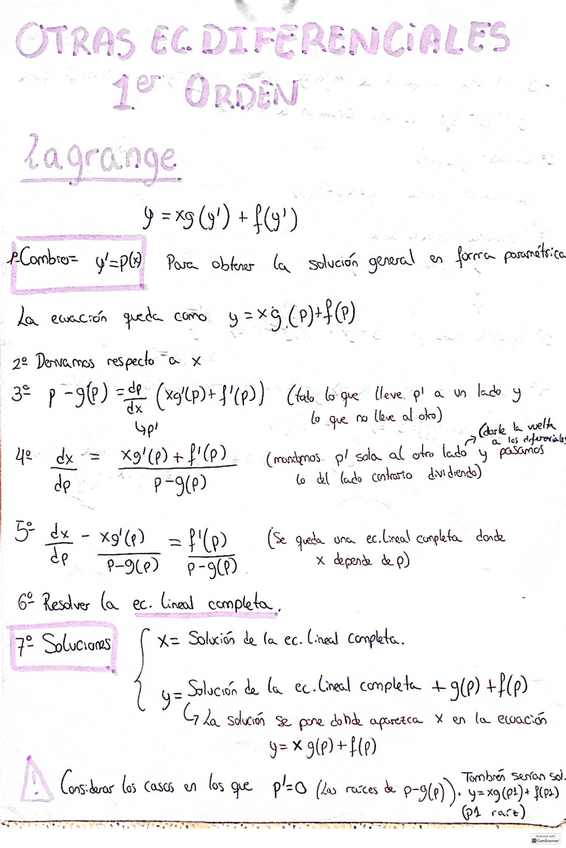 OTRAS EC.DIFERENCIALES
1er ORDEN
Lagrange
y = xg(y') + f(y')
1º Cambio= y'=p(x) Para obtener la solución general en forma paramétrica
La ecuación queda como y = x g(p)+f(p)
2º Derivamos respecto a x
3º p - g(p) = dp/dx (xg'(p)+f'(p)) (todo lo que lleve p' a un lado y
lo que no lleve al otro)
↳p'
(darle la vuelta
a los diferenciales)
4º dx/dp = xg'(p)+f'(p) / p-g(p) (mandamos p' sola al otro lado y pasamos
lo del lado contrario dividiendo)
5º dx/dp - xg'(p)/p-g(p) = f'(p)/p-g(p) (Se queda una ec.lineal completa donde
x depende de p)
6º Resolver la ec. lineal completa.
7º Soluciones { x= Solución de la ec. lineal completa.
y= Solución de la ec. lineal completa + g(p) + f(p)
↳ La solución se pone donde aparezca x en la ecuación
y = x g(p) + f(p)
! Considerar los casos en los que p'=0 (Las raíces de p-g(p)). También serían sol.
y = xg(p1)+ f(p1)
(p1 raíz)
Scanned with
CamScanner